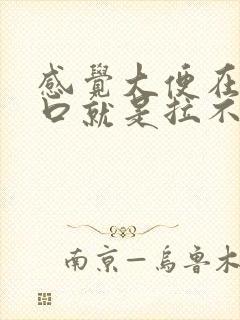 感覺大便在
口就是拉不
南京—烏魯木